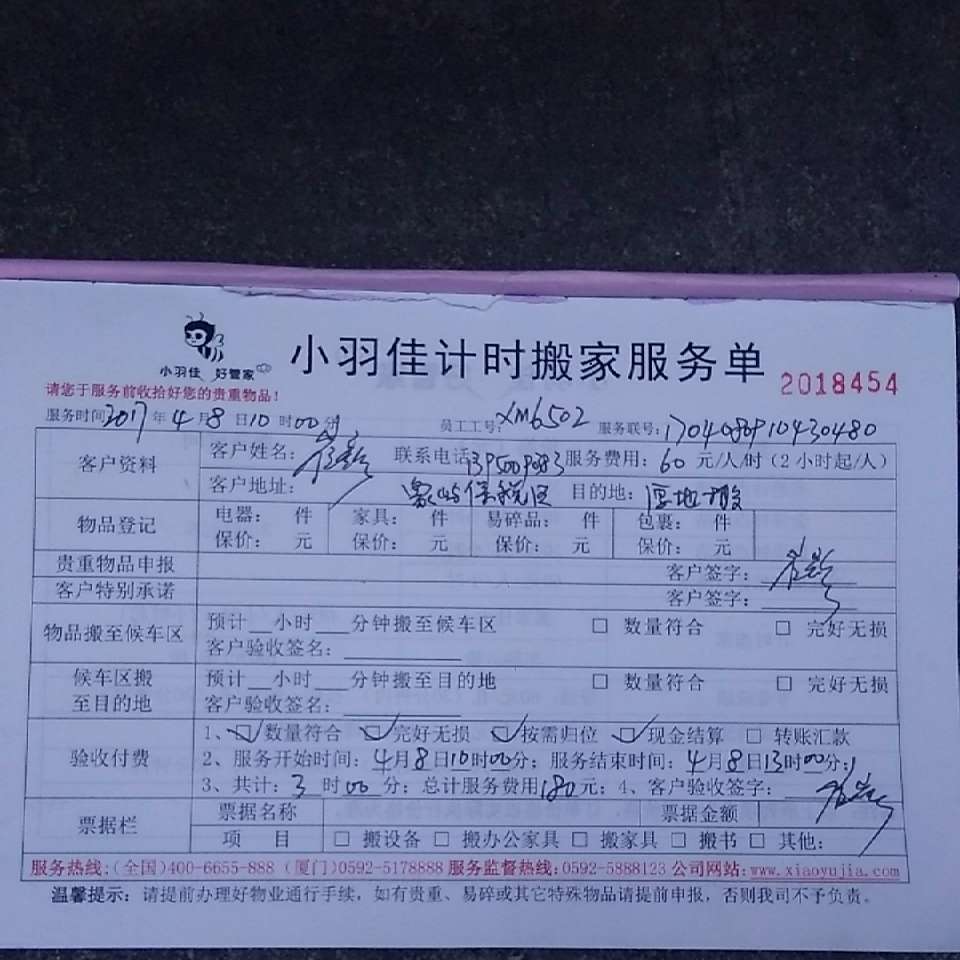 小羽佳 好管家
小羽佳计时搬家服务单
2018454
请您于服务前收拾好您的贵重物品!
服务时间2017年4月8日10时00分 员工工号:XM6502 服务联号:17040891043 0480
客户资料 客户姓名: 联系电话 服务费用:60元/人/时(2小时起/人)
客户地址: 象屿保税区 目的地:
物品登记 电器: 件 家具: 件 易碎品: 件 包裹: 件
保价: 元 保价: 元 保价: 元 保价: 元
贵重物品申报 客户签字:
客户特别承诺 客户签字:
物品搬至候车区 预计__小时___分钟搬至候车区 □ 数量符合 □ 完好无损
客户验收签名:
候车区搬至目的地 预计__小时___分钟搬至目的地 □ 数量符合 □ 完好无损
客户验收签名:
验收付费 1、☑数量符合 ☑完好无损 ☑按需归位 ☑现金结算 □ 转账汇款
2、服务开始时间:4月8日10时00分;服务结束时间:4月8日13时00分;
3、共计:3时00分;总计服务费用180元;4、客户验收签字:
票据栏 票据名称 票据金额
项 目 □ 搬设备 □ 搬办公家具 □ 搬家具 □ 搬书 □ 其他:
服务热线:(全国)400-6655-888 (厦门)0592-5178888 服务监督热线:0592-5888123 公司网站:www.xiaoyujia.com
温馨提示:请提前办理好物业通行手续,如有贵重、易碎或其它特殊物品请提前申报,否则我司不予负责。